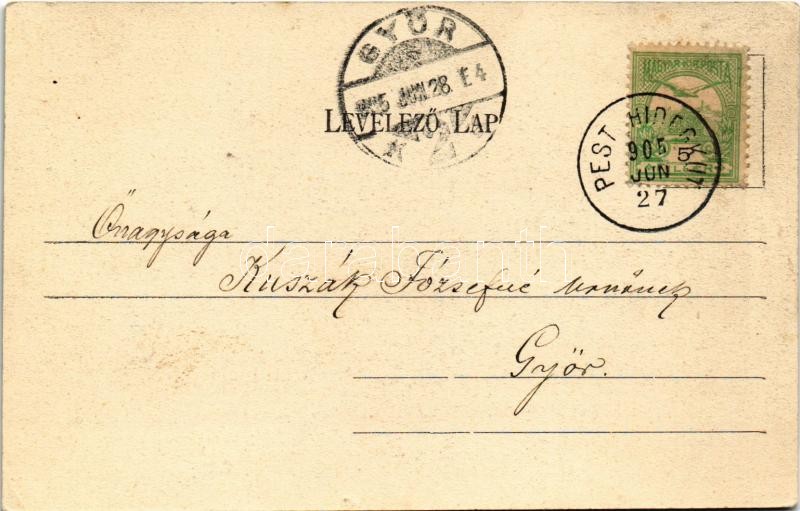 GYŐR
905 JUN 28. E4
MAGYAR KIR. POSTA
LEVELEZŐ LAP
PEST HIDEGKÚT
905
JUN
27
5
Őnagysága
darabanth
Kuszák Józsefné urnőnek
Győr.